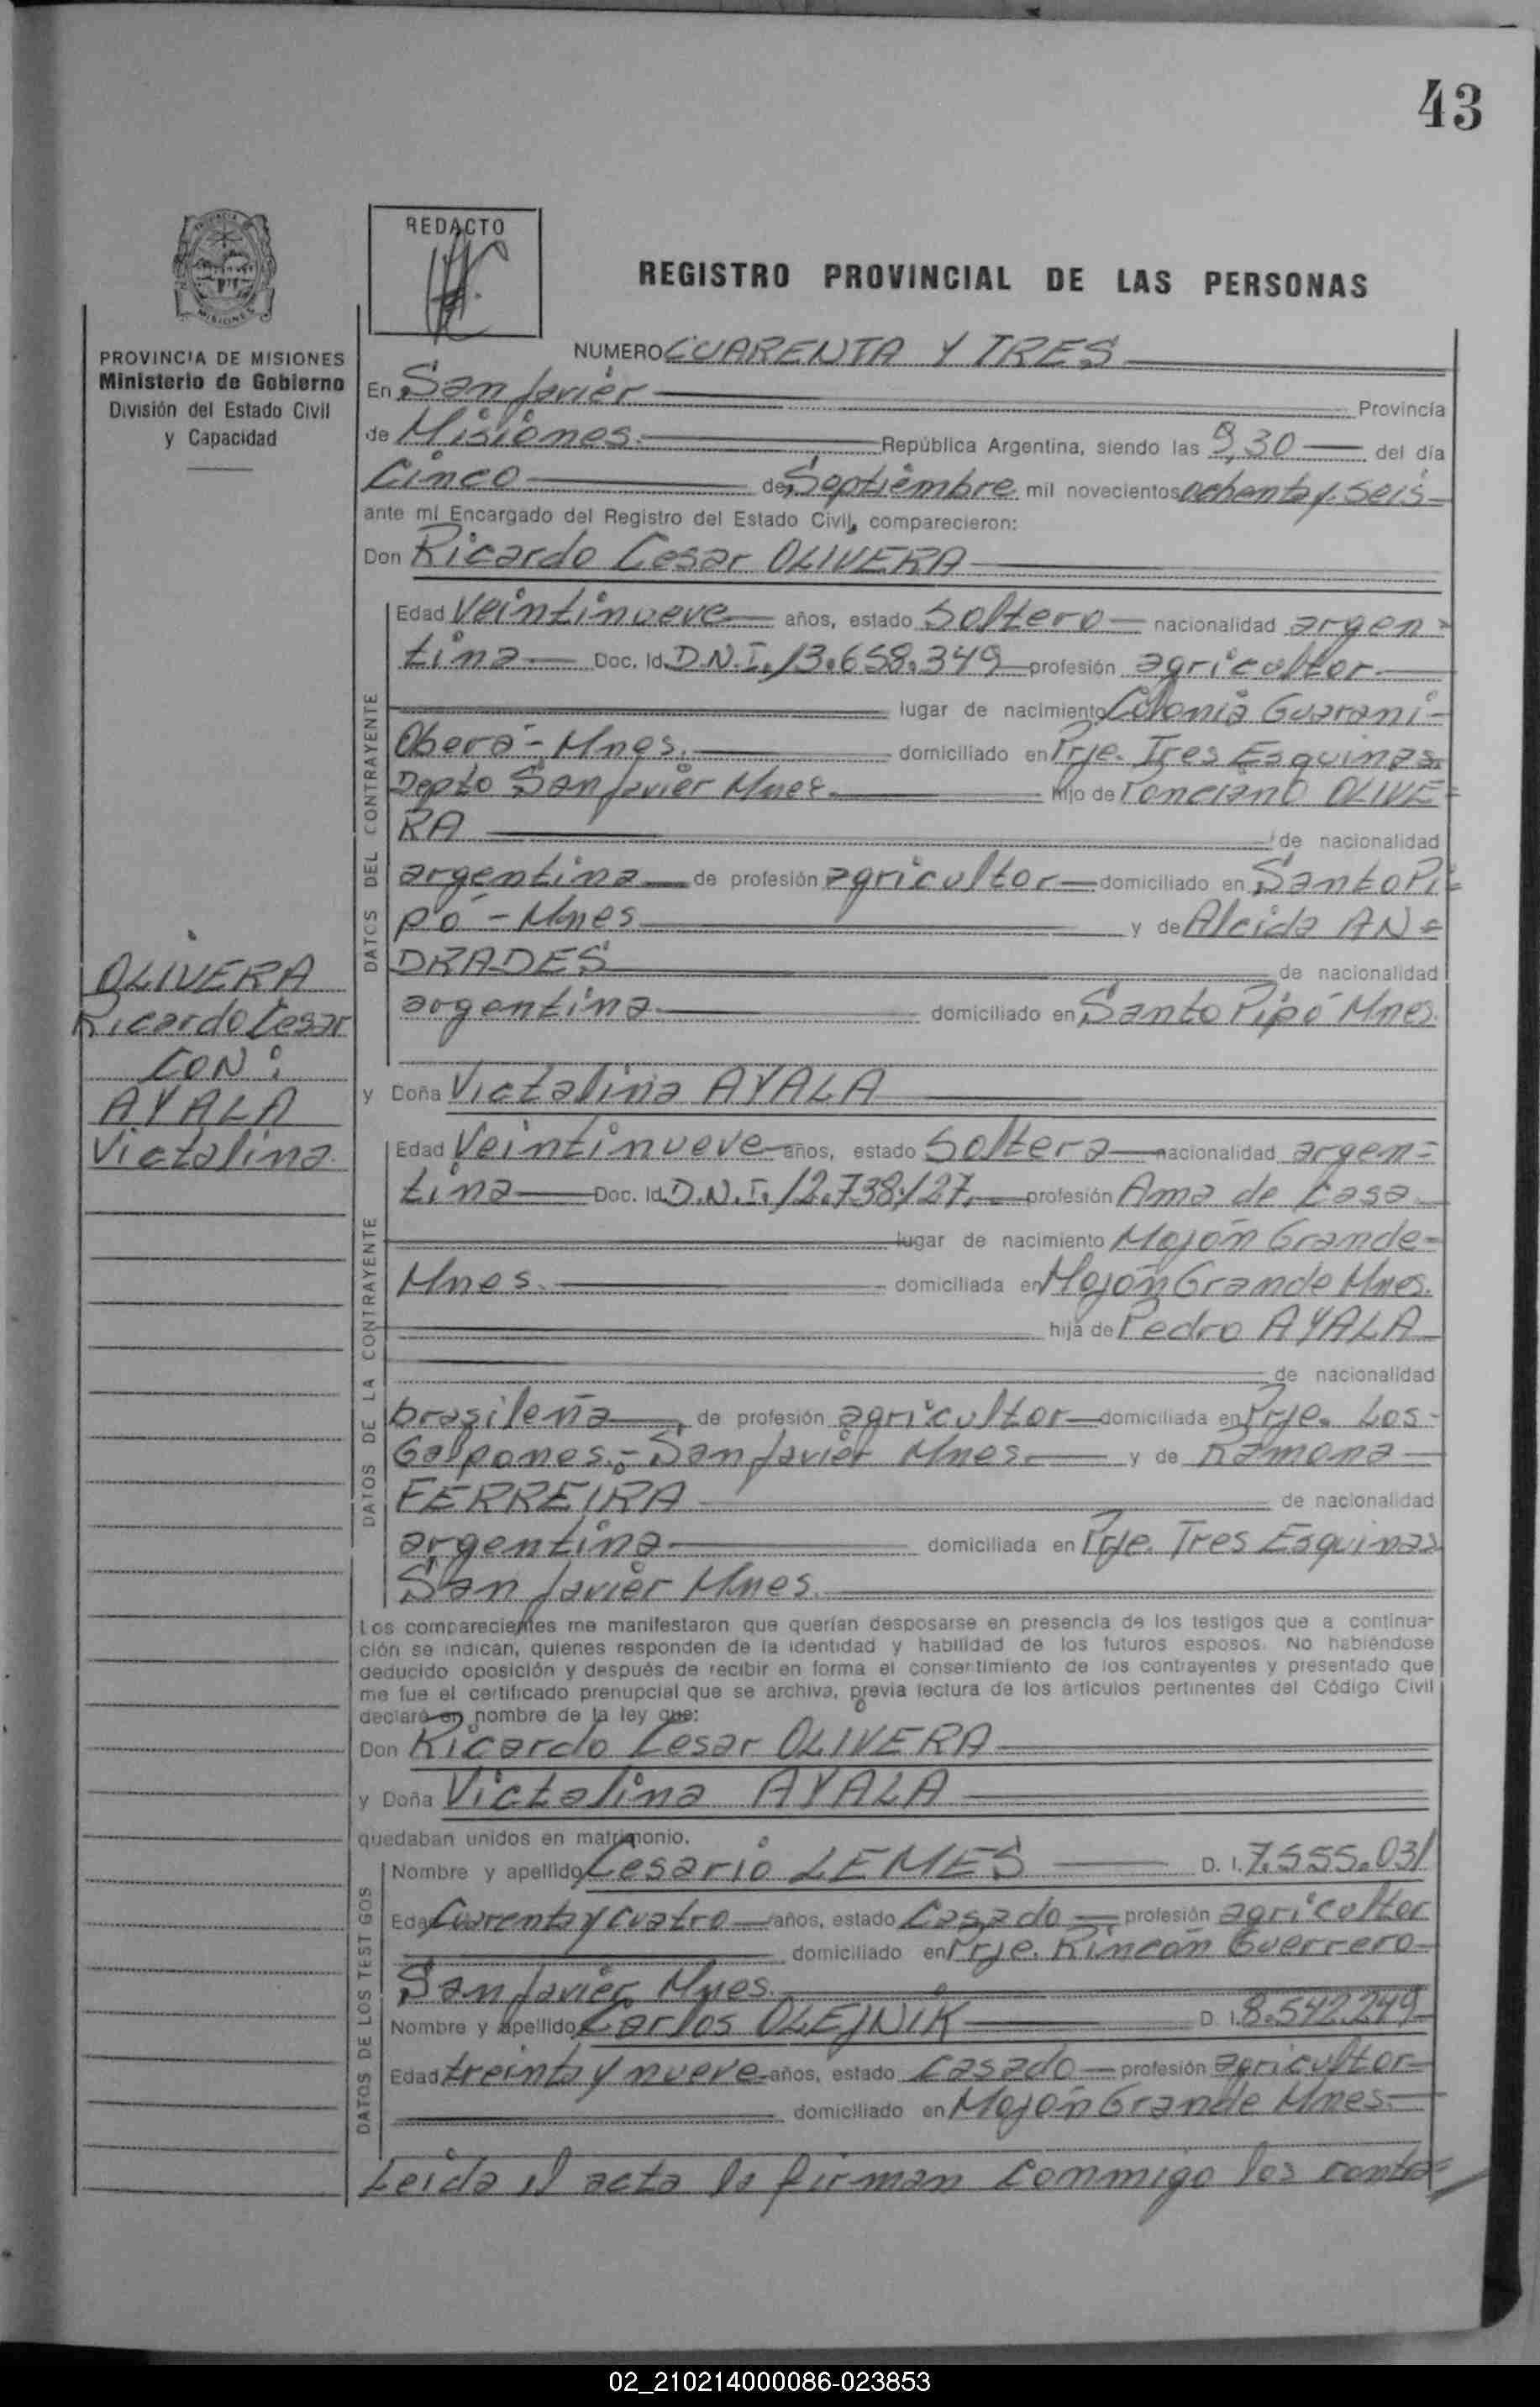 43
REDACTO
REGISTRO PROVINCIAL DE LAS PERSONAS
PROVINCIA DE MISIONES
Ministerio de Gobierno
División del Estado Civil
y Capacidad
NUMERO CUARENTA Y TRES
En San Javier Provincia
de Misiones. República Argentina, siendo las 9,30 del día
Cinco de Septiembre mil novecientos ochenta y seis
ante mí Encargado del Registro del Estado Civil, comparecieron:
Don Ricardo Cesar OLIVERA
DATOS DEL CONTRAYENTE
Edad Veintinueve años, estado Soltero nacionalidad argen=
tina Doc. Id. D.N.I. 13.658.349 profesión agricultor
lugar de nacimiento Colonia Guaraní-
Oberá - Mnes. domiciliado en Prje. Tres Esquinas
Depto San Javier Mnes. hijo de Ponciano OLIVE=
RA de nacionalidad
argentina de profesión agricultor domiciliado en Santo Pi=
pó - Mnes y de Alcida AN=
DRADES de nacionalidad
argentina domiciliado en Santo Pipó Mnes.
OLIVERA
Ricardo Cesar
CON:
AYALA
Victalina
y Doña Victalina AYALA
DATOS DE LA CONTRAYENTE
Edad Veintinueve años, estado Soltera nacionalidad argen=
tina Doc. Id. D.N.I. 12.738.127. profesión Ama de Casa
lugar de nacimiento Mojón Grande-
Mnes. domiciliada en Mojón Grande Mnes.
hija de Pedro AYALA
de nacionalidad
brasileña de profesión agricultor domiciliada en Prje. Los-
Galpones.- San Javier Mnes. y de Ramona
FERREIRA de nacionalidad
argentina domiciliada en Prje. Tres Esquinas
San Javier Mnes.
Los comparecientes me manifestaron que querían desposarse en presencia de los testigos que a continua-
ción se indican, quienes responden de la identidad y habilidad de los futuros esposos. No habiéndose
deducido oposición y después de recibir en forma el consentimiento de los contrayentes y presentado que
me fue el certificado prenupcial que se archiva, previa lectura de los artículos pertinentes del Código Civil
declaro en nombre de la ley que:
Don Ricardo Cesar OLIVERA
y Doña Victalina AYALA
quedaban unidos en matrimonio.
DATOS DE LOS TESTIGOS
Nombre y apellido Cesario LEMES D. I. 7.555.031
Edad Cuarenta y cuatro años, estado Casado profesión agricultor
domiciliado en Prje. Rincón Guerrero
San Javier Mnes.
Nombre y apellido Carlos OLEJNIK D. I. 8.542.249
Edad treinta y nueve años, estado Casado profesión agricultor
domiciliado en Mojón Grande Mnes.
Leida el acta la firman conmigo los contra=
02_210214000086-023853